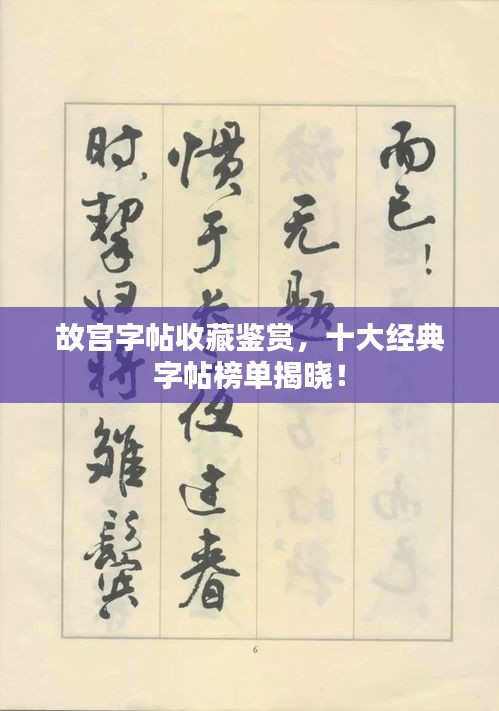 故宫字帖收藏鉴赏，十大经典
字帖榜单揭晓！
而已！
无题
惯于长夜过春
时，挈妇将雏鬓
6